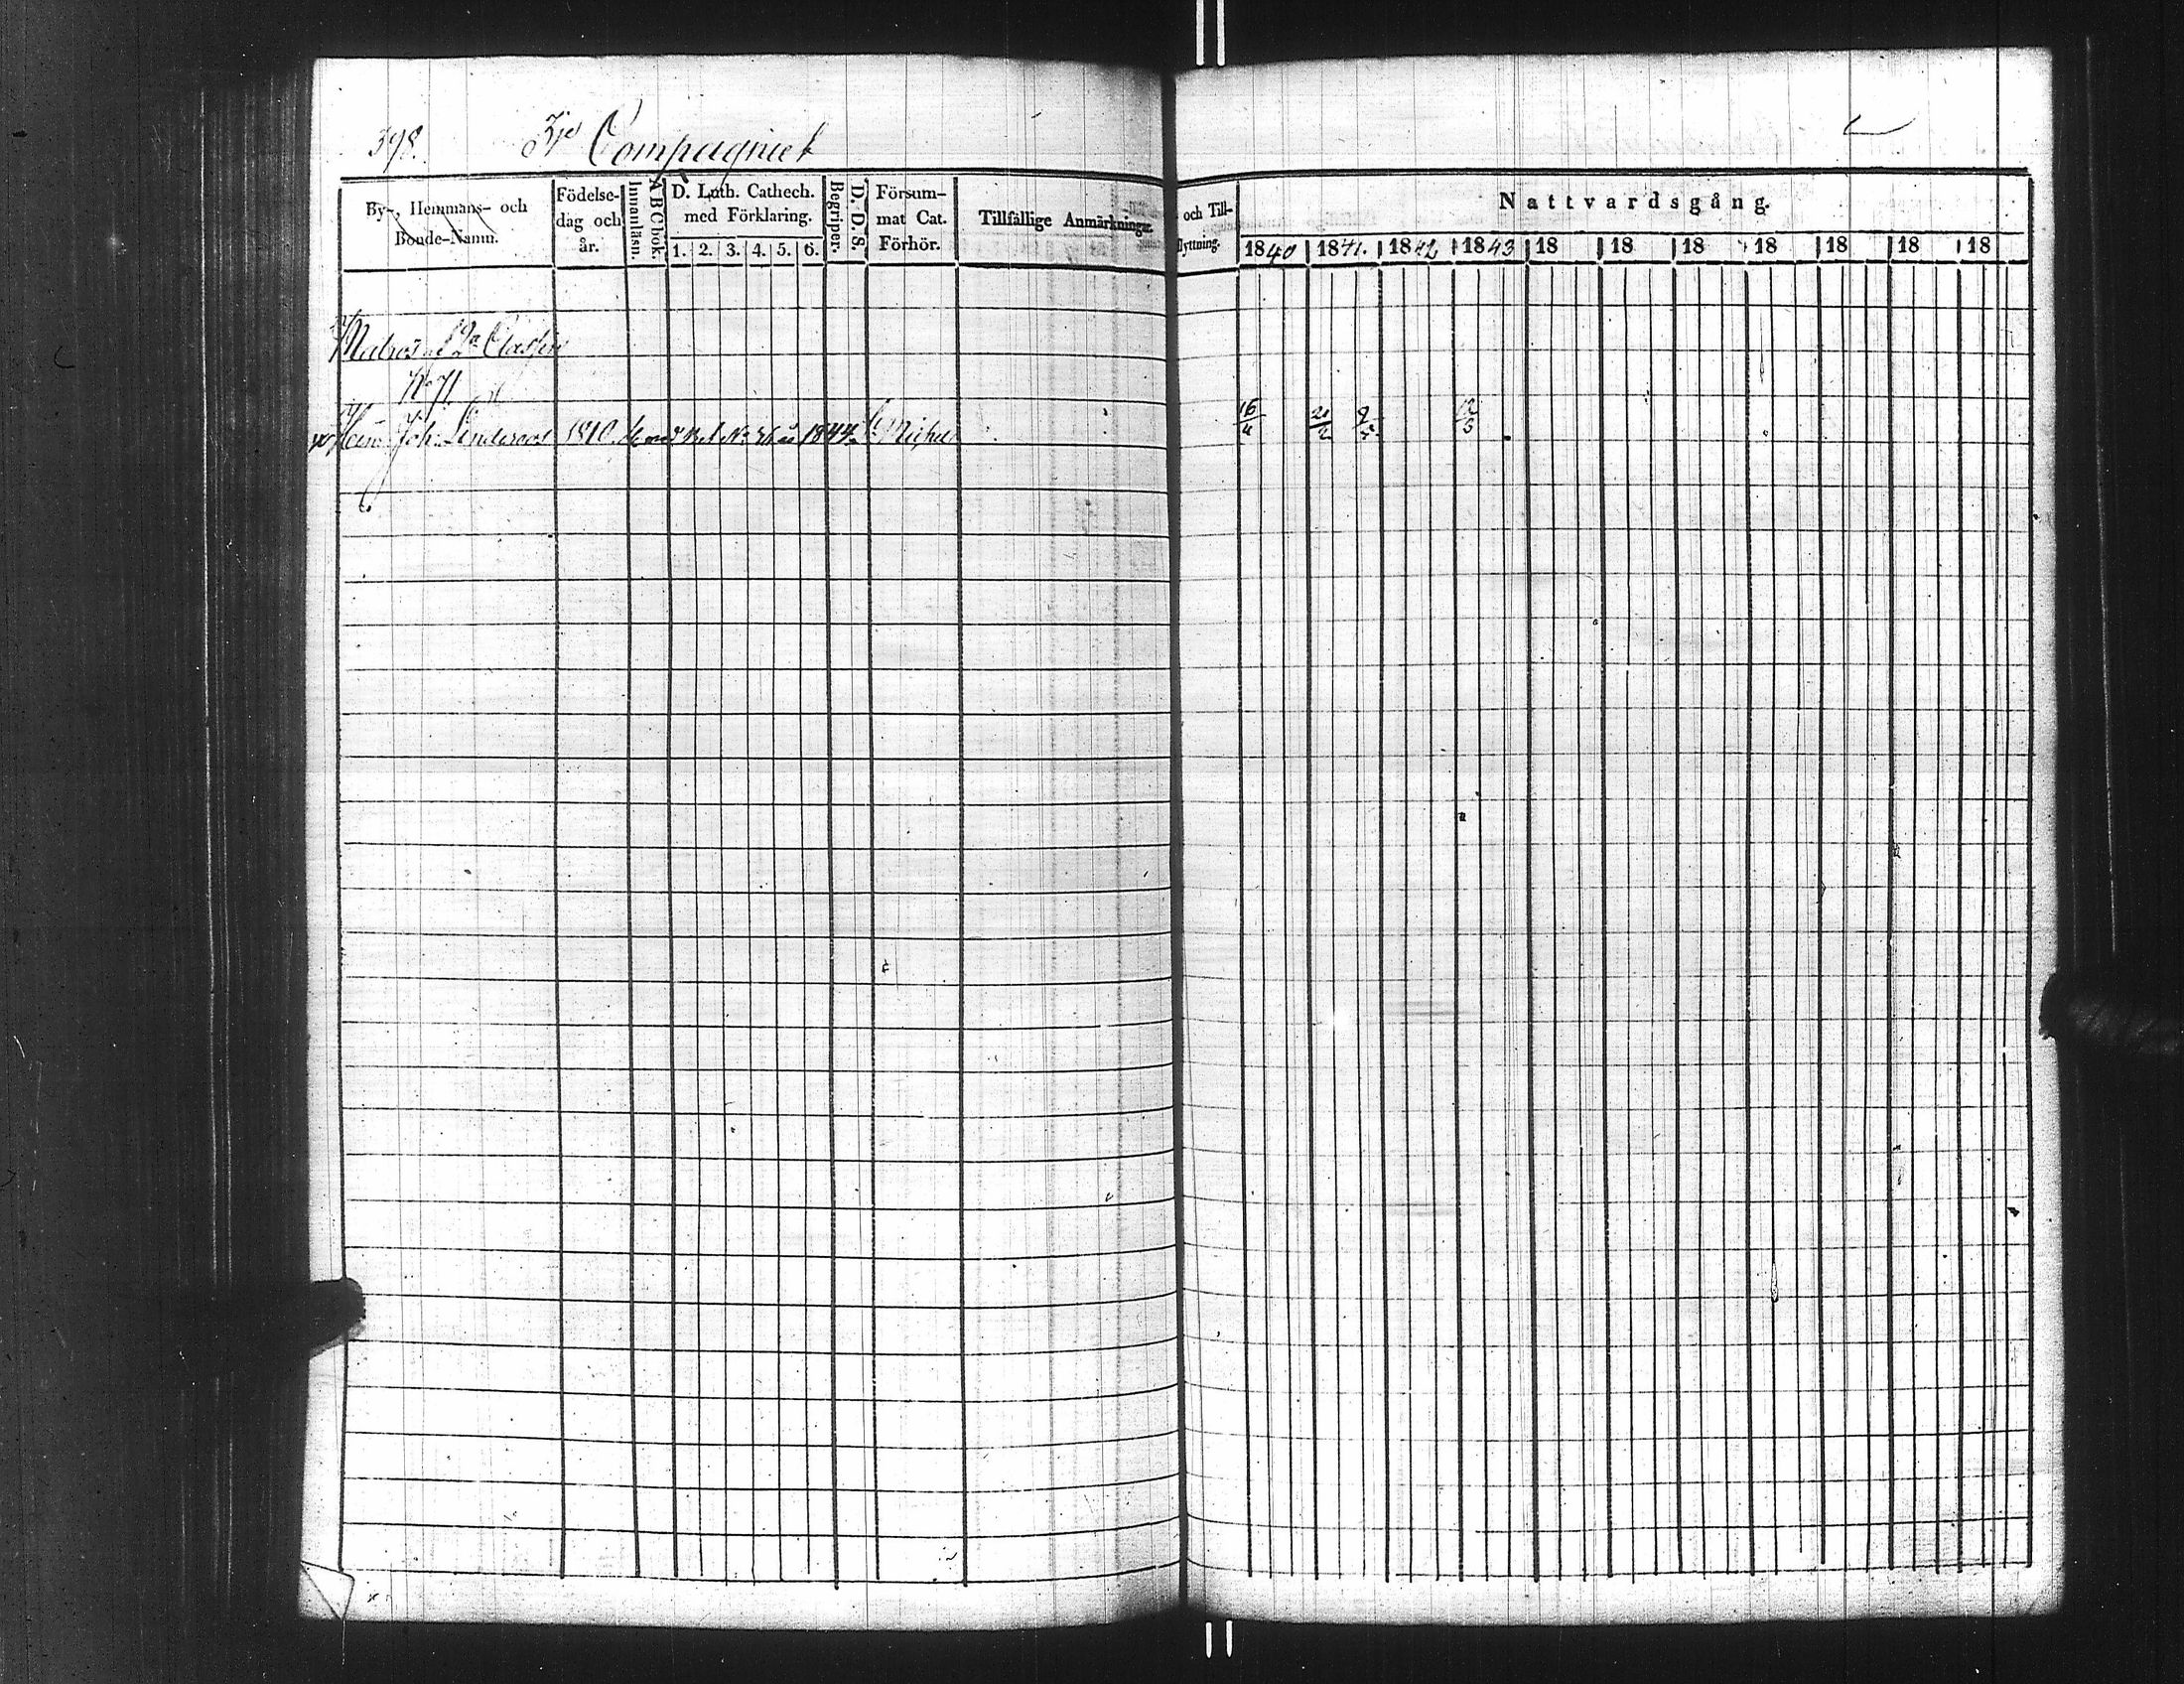 398. 3je Compagniet
By-, Hemmans- och Bonde-Namn.
Födelse-dag och år.
Innanläsn.
A B C bok.
D. Luth. Cathech. med Förklaring.
1. 2. 3. 4. 5. 6.
Begriper.
D. D. S.
Försum-mat Cat. Förhör.
Tillfällige Anmärkningar.
och Till-flyttning.
Nattvardsgång.
1840 1841. 1842 1843 18 18 18 18 18 18 18
Matros af 2a Classen
No 71
Henr Joh. Lindroos 1810. 1844 16/4 21/2 12/3